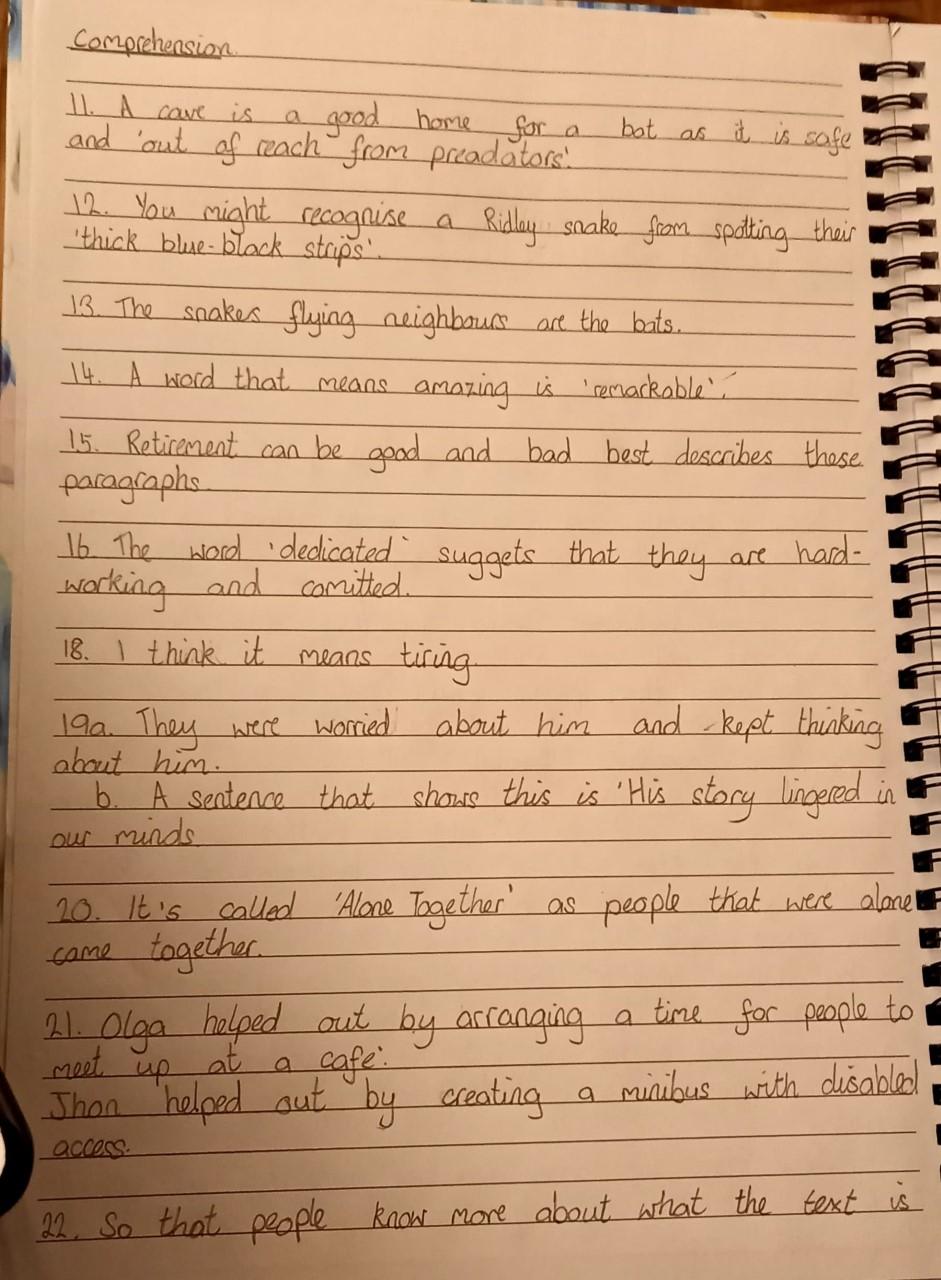 Comprehension.
11. A cave is a good home for a bat as it is safe
and 'out of reach from preadators'.
12. You might recognise a Ridley snake from spotting their
'thick blue-black strips'.
13. The snakes flying neighbours are the bats.
14. A word that means amazing is 'remarkable'.
15. Retirement can be good and bad best describes these
paragraphs.
16. The word 'dedicated' suggets that they are hard-
working and comitted.
18. I think it means tiring.
19a. They were worried about him and kept thinking
about him.
b. A sentence that shows this is 'His story lingered in
our minds
20. It's called 'Alone Together' as people that were alone
came together.
21. Olga helped out by arranging a time for people to
meet up at a cafe.
Jhon helped out by creating a minibus with disabled
access.
22. So that people know more about what the text is